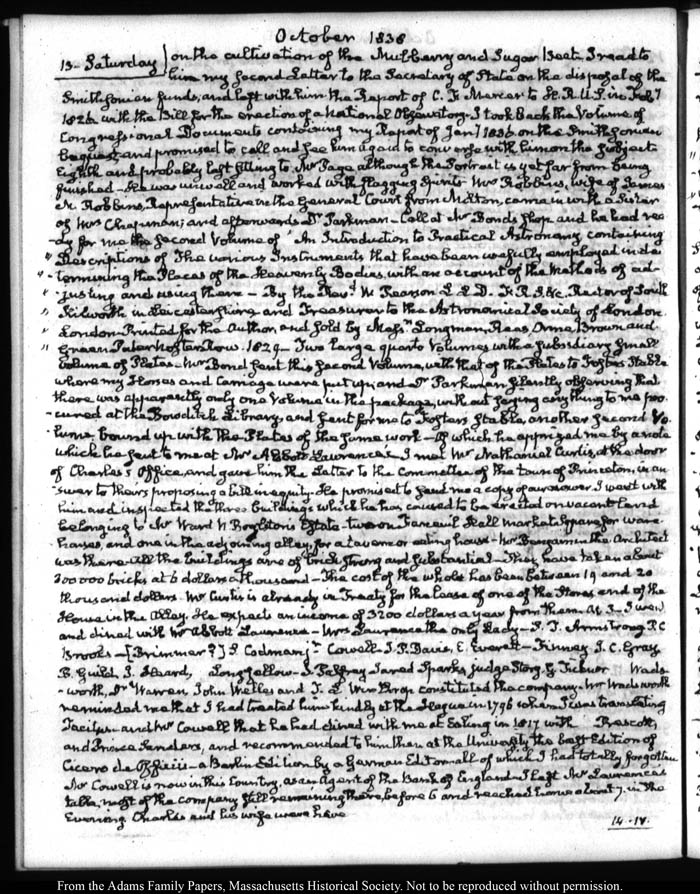 October 1838
13. Saturday on the cultivation of the Mulberry and Sugar Beet. I read to
him my second Letter to the Secretary of State on the disposal of the
Smithsonian funds, and left with him the Report of C. F. Mercer to H. R. U. S. in Feby
1826 with the Bill for the erection of a National Observatory. I took back the Volume of
Congressional Documents containing my Report of Jany 1836 on the Smithsonian
Bequest and promised to call and see him again to converse with him on the subject
Eighth and probably last sitting to Mr Page although the Portrait is yet far from being
finished. He was unwell and worked with flagging Spirits. Mrs Robbins, wife of James
M. Robbins, Representative in the General Court from Milton, came in with a Sister
of Mrs Chapman; and afterwards Dr Parkman. Call at Mr Bonds shop and he had rea-
-dy for me the second Volume of "An Introduction to Practical Astronomy, containing
" Descriptions of the various Instruments that have been usefully employed in de-
" -termining the Places of the Heavenly Bodies, with an account of the Methods of ad-
" -justing and using them - By the Revd W. Pearson L L D. F. R. S. &c. Rector of South
" Kilworth in Leicestershire and Treasurer to the Astronomical Society of London.
" London Printed for the Author, and sold by Messrs Longman, Rees Orme Brown and
" Green Paternoster Row. 1829 - Two large quarto Volumes with a subsidiary small
Volume of Plates - Mr Bond sent this second Volume, with that of the Plates to Fosters Stable
where my Horses and Carriage were put up; and Dr Parkman silently observing that
there was apparently only one Volume in the package, without saying any thing to me pro-
-cured at the Bowditch Library, and sent for me to Fosters Stable, another second Vo-
-lume, bound up with the Plates of the same work - Of which he apprized me by a note
which he sent to me at Mr Abbott Lawrence's. I met Mr Nathaniel Curtis, at the door
of Charles's Office, and gave him the Letter to the Committee of the town of Princeton, in an-
swer to theirs proposing a bill in equity. He promised to send me a copy of our answer. I went with
him and inspected the three buildings which he has caused to be erected on vacant Land
belonging to Mr Ward N Boylston's Estate - two on Faneuil Hall market Square, for ware-
houses, and one in the adjoining alley, for a tavern or eating house - Mr Benjamin the Architect
was there. All the buildings are of brick strong and substantial - They have taken about
300 000 bricks at 6 dollars a thousand - The cost of the whole has been between 19 and 20
thousand dollars. Mr Curtis is already in Treaty for the lease of one of the Stores and of the
House in the Alley. He expects an income of 3200 dollars a year from them. At 3. I went
and dined with Mr Abbott Lawrence - Mrs Lawrence the only Lady - S. T. Armstrong P. C
Brooks - [Brimmer?] Codman, Cowell - J. P. Davis, E. Everett - Finney J. C. Gray,
B. Guild, J. Heard, Longfellow - Palfrey Jared Sparks, Judge Story, G Ticknor Wads-
-worth, Dr Warren John Welles and T. L. Winthrop constituted the company. Mr Wadsworth
reminded me that I had treated him kindly at the Hague in 1796 when I was translating
Tacitus - and Mr Cowell that he had dined with me at Ealing in 1817 with Prescott,
and recommended to him then at the University, the best Edition of
Cicero de Officiis - a Berlin Edition by a German Editor - all of which I had totally forgotten
Mr Cowell is now in this Country, as an Agent of the Bank of England - I left Mr Lawrence's
table, most of the company still remaining there, before 6 and reached home about 7. in the
Evening Charles and his wife were here
14.-IV.
From the Adams Family Papers, Massachusetts Historical Society. Not to be reproduced without permission.